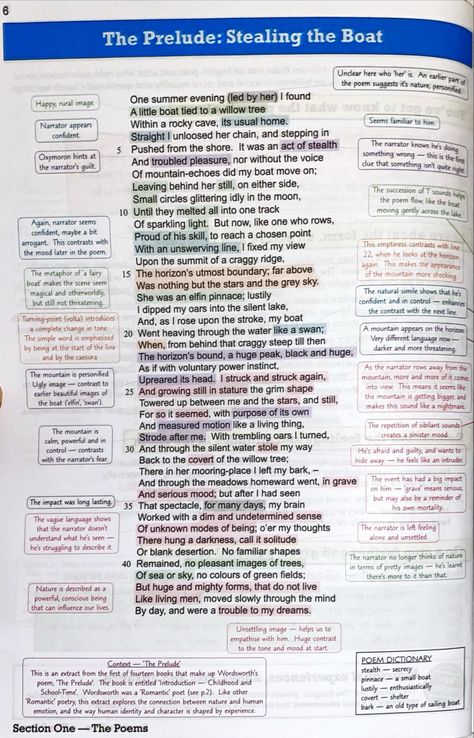 6
The Prelude: Stealing the Boat
Unclear here who 'her' is. An earlier part of
the poem suggests it's nature, personified.
Happy, rural image.
Narrator appears
confident.
Oxymoron hints at
the narrator's guilt.
Again, narrator seems
confident, maybe a bit
arrogant. This contrasts with
the mood later in the poem.
The metaphor of 'a fairy
boat' makes the scene seem
magical and otherworldly,
but still not threatening.
Turning-point (volta) introduces
a complete change in tone
The simple word is emphasised
by being at the start of the line
and by the caesura
The mountain is personified.
Ugly image — contrast to
earlier beautiful images of
the boat ('elfin', 'swan').
The mountain is
calm, powerful and in
control — contrasts
with the narrator's fear.
The impact was long lasting.
The vague language shows
that the narrator doesn't
understand what he's seen —
he's struggling to describe it.
Nature is described as a
powerful, conscious being
that can influence our lives.
One summer evening (led by her) I found
A little boat tied to a willow tree
Within a rocky cave, its usual home.
Straight I unloosed her chain, and stepping in
5 Pushed from the shore. It was an act of stealth
And troubled pleasure, nor without the voice
Of mountain-echoes did my boat move on;
Leaving behind her still, on either side,
Small circles glittering idly in the moon,
10 Until they melted all into one track
Of sparkling light. But now, like one who rows,
Proud of his skill, to reach a chosen point
With an unswerving line, I fixed my view
Upon the summit of a craggy ridge,
15 The horizon's utmost boundary; far above
Was nothing but the stars and the grey sky.
She was an elfin pinnace; lustily
I dipped my oars into the silent lake,
And, as I rose upon the stroke, my boat
20 Went heaving through the water like a swan;
When, from behind that craggy steep till then
The horizon's bound, a huge peak, black and huge,
As if with voluntary power instinct,
Upreared its head. I struck and struck again,
25 And growing still in stature the grim shape
Towered up between me and the stars, and still,
For so it seemed, with purpose of its own
And measured motion like a living thing,
Strode after me. With trembling oars I turned,
30 And through the silent water stole my way
Back to the covert of the willow tree;
There in her mooring-place I left my bark, –
And through the meadows homeward went, in grave
And serious mood; but after I had seen
35 That spectacle, for many days, my brain
Worked with a dim and undetermined sense
Of unknown modes of being; o'er my thoughts
There hung a darkness, call it solitude
Or blank desertion. No familiar shapes
40 Remained, no pleasant images of trees,
Of sea or sky, no colours of green fields;
But huge and mighty forms, that do not live
Like living men, moved slowly through the mind
By day, and were a trouble to my dreams.
Seems familiar to him.
The narrator knows he's doing
something wrong — this is the first
clue that something isn't quite right.
The succession of T sounds helps
the poem flow, like the boat
moving gently across the lake.
This emptiness contrasts with line
22, when he looks at the horizon
again. This makes the appearance
of the mountain more shocking.
The natural simile shows that he's
confident and in control — enhances
the contrast with the next line.
A mountain appears on the horizon.
Very different language now —
darker and more threatening.
As the narrator rows away from the
mountain, more and more of it comes
into view. This means it seems like
the mountain is getting bigger, and
makes this sound like a nightmare.
The repetition of sibilant sounds
creates a sinister mood.
He's afraid and guilty, and wants to
hide away — he feels like an intruder.
The event has had a big impact
on him — 'grave' means serious,
but may also be a reminder of
his own mortality.
The narrator is left feeling
alone and unsettled.
The narrator no longer thinks of nature
in terms of pretty images — he's learnt
there's more to it than that.
Unsettling image — helps us to
empathise with him. Huge contrast
to the tone and mood at start.
Context — 'The Prelude'
This is an extract from the first of fourteen books that make up Wordsworth's
poem, 'The Prelude'. The book is entitled 'Introduction — Childhood and
School-Time'. Wordsworth was a 'Romantic' poet (see p.2). Like other
'Romantic' poetry, this extract explores the connection between nature and human
emotion, and the way human identity and character is shaped by experience.
POEM DICTIONARY
stealth — secrecy
pinnace — a small boat
lustily — enthusiastically
covert — shelter
bark — an old type of sailing boat
Section One — The Poems